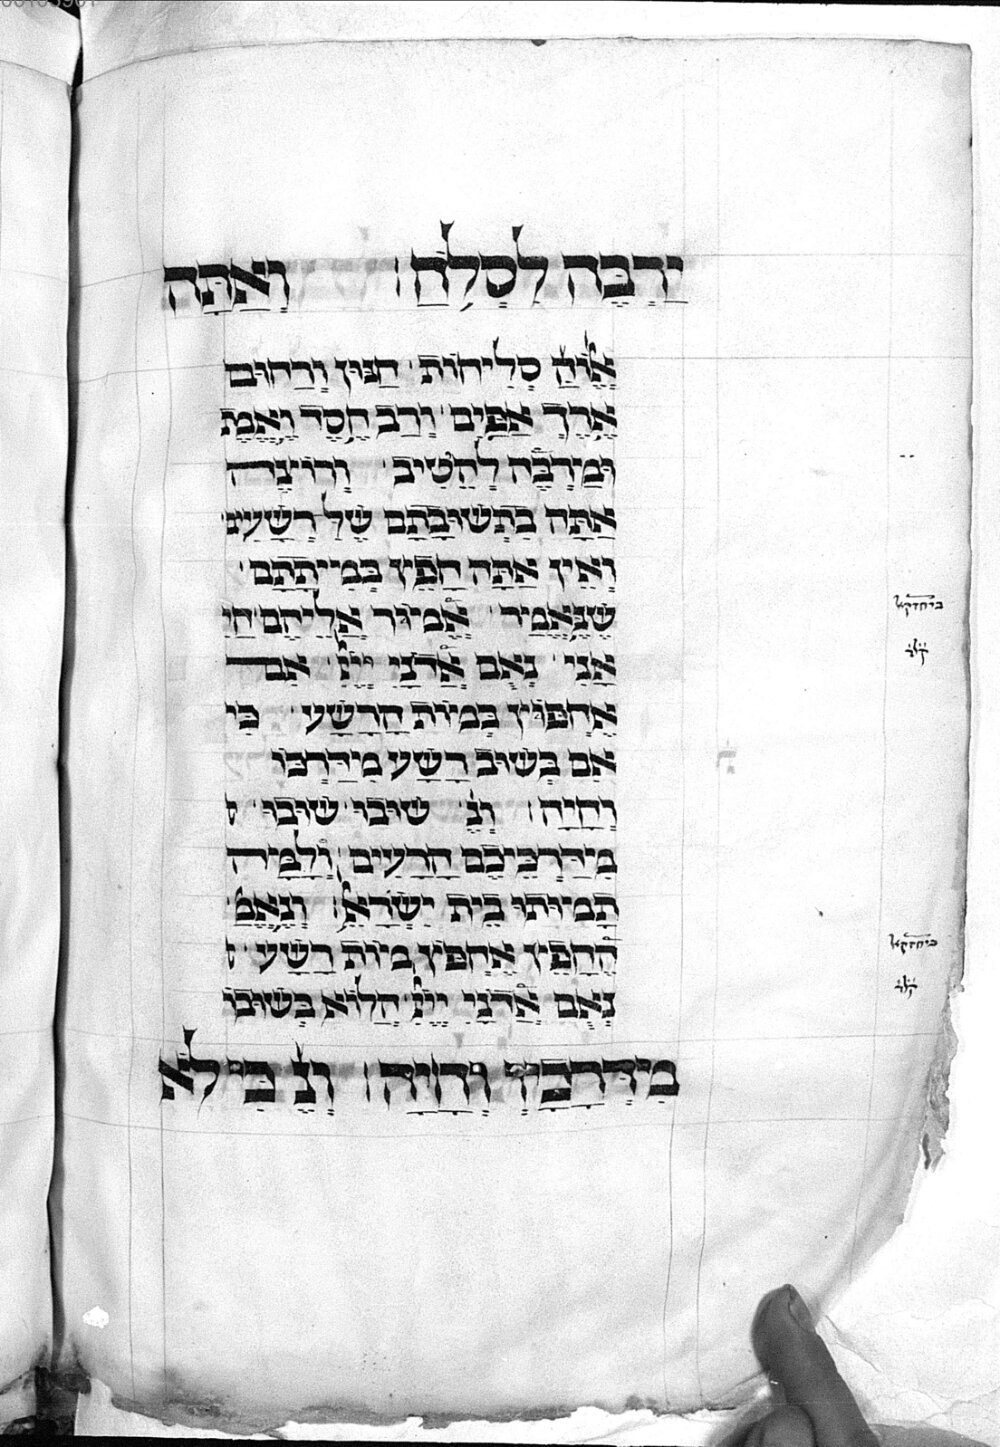 יַרְבֶּה לִסְלֹחַ׃ וְאַתָּה
אֱלוֹהַּ סְלִיחוֹת ׳ חַנּוּן וְרַחוּם
אֶרֶךְ אַפַּיִם ׳ וְרַב חֶסֶד וֶאֱמֶת
וּמַרְבֶּה לְהֵטִיב ׳ וְרוֹצֶה
אַתָּה בִתְשׁוּבָתָם שֶׁל רְשָׁעִים
וְאֵין אַתָּה חָפֵץ בְּמִיתָתָם ׳
שֶׁנֶּאֱמַר ׳ אֱמוֹר אֲלֵיהֶם ׳ חַי
אָנִי ׳ נְאֻם אֲדֹנָי יְיָ׳ ׳ אִם
אֶחְפּוֹץ בְּמוֹת הָרָשָׁע ׳ כִּי
אִם בְּשׁוּב רָשָׁע מִדַּרְכּוֹ
וְחָיָה ׃ וְנֶ׳ שׁוּבוּ ׳ שׁוּבוּ ׳
מִדַּרְכֵיכֶם הָרָעִים ׳ וְלָמָּה
תָמוּתוּ בֵּית יִשְׂרָאֵ׳ ׃ וְנֶאֱמַ׳
הֶחָפֵץ אֶחְפּוֹץ מוֹת רָשָׁע ׳
נְאֻם אֲדֹנָי יְיָ׳ הֲלוֹא בְּשׁוּבוֹ
מִדְּרָכָיו וְחָיָה ׃ וְנֶ׳ כִּי לֹא
ביחזקאל
ביחזקאל